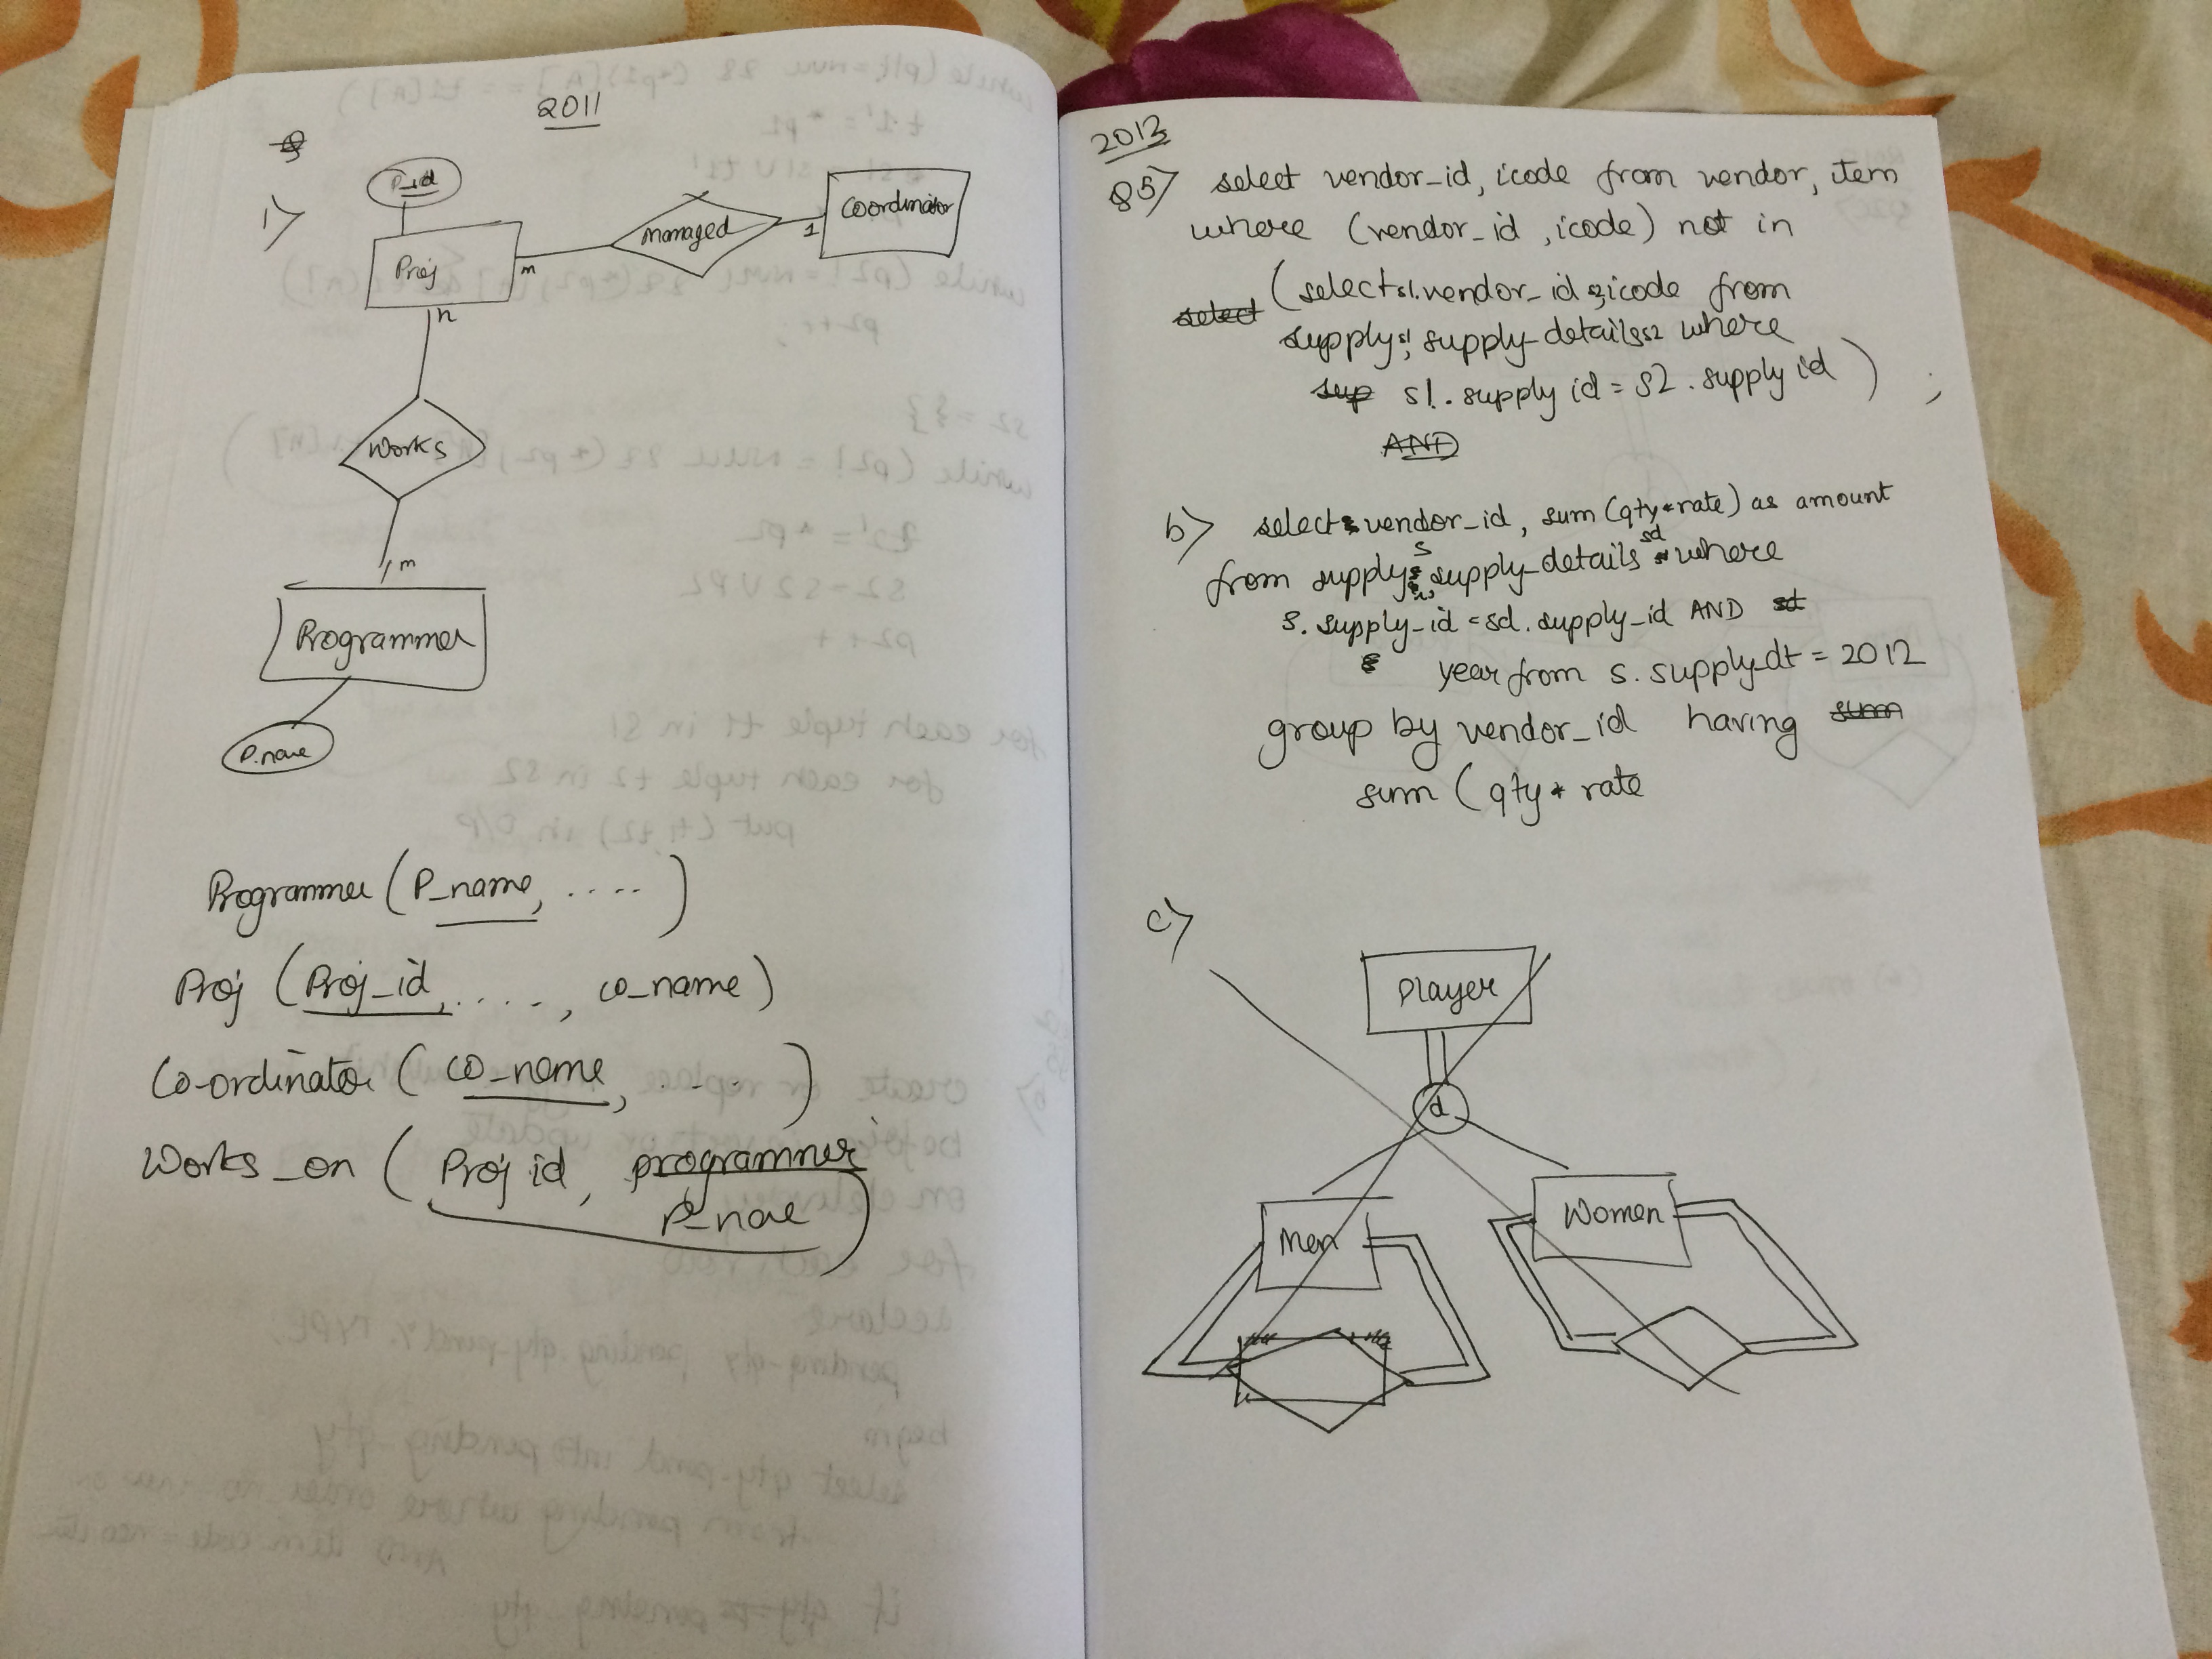 2011
1>
P_id
Proj
m
managed
1
coordinator
n
works
m
Programmer
P.name
Programmer (P_name, ....)
Proj (Proj_id ....., co_name)
Co-ordinator (co_name, )
Works_on (Proj id, programmer
p_name)
2013
Q5> select vendor_id, icode from vendor, item
where (vendor_id, icode) not in
select (select s1.vendor_id, icode from
supply s1, supply_details s2 where
sup s1.supply id = s2.supply id) ;
AND
b> select s.vendor_id, sum (qty*rate) as amount
from supply s, supply_details sd where
s.supply_id = sd.supply_id AND
year from s.supply_dt = 2012
group by vendor_id having sum
sum (qty * rate
c>
Player
d
Men
Women